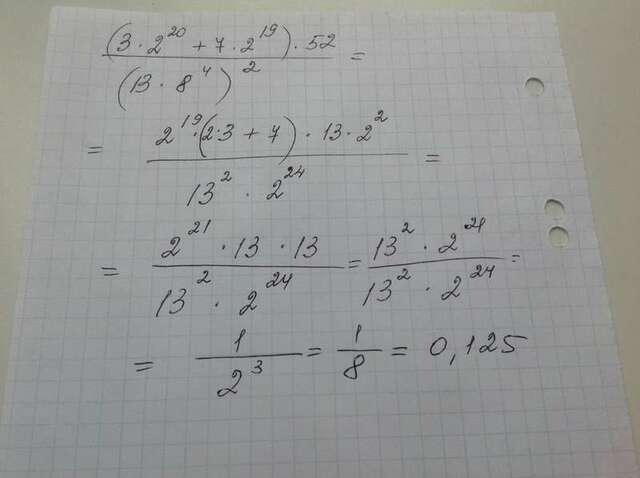 (3 · 2²⁰ + 7 · 2¹⁹) · 52 / (13 · 8⁴)² =
= 2¹⁹ · (2·3 + 7) · 13 · 2² / 13² · 2²⁴ =
= 2²¹ · 13 · 13 / 13² · 2²⁴ = 13² · 2²¹ / 13² · 2²⁴ =
= 1 / 2³ = 1 / 8 = 0,125